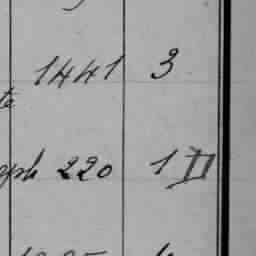 1441 3
te
aph 220 1 II